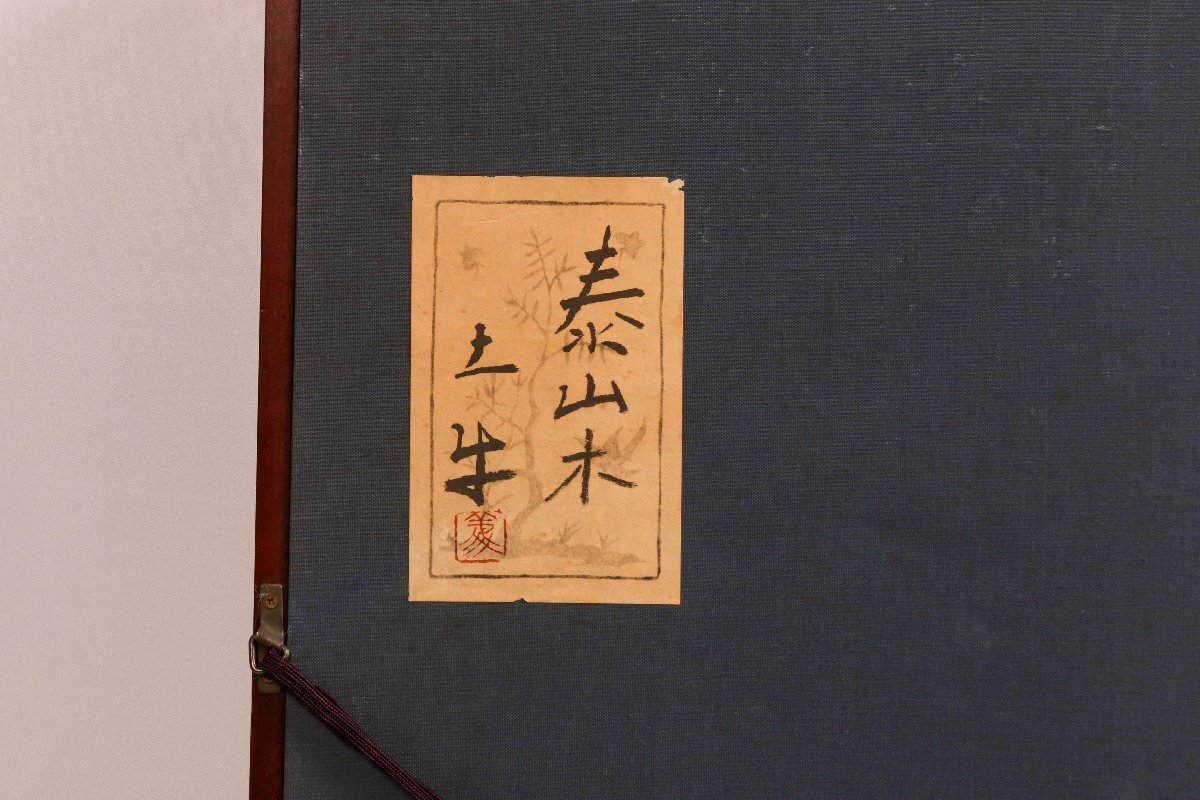 泰山木
土牛